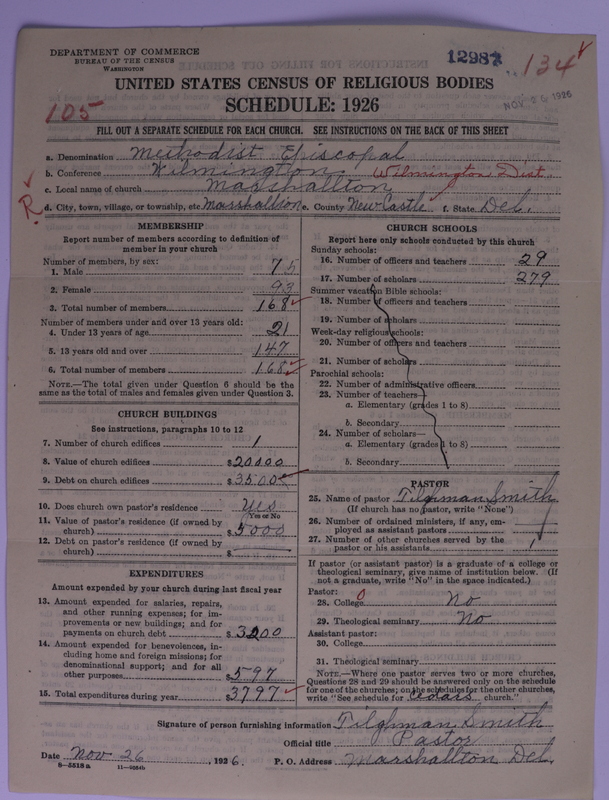 DEPARTMENT OF COMMERCE
BUREAU OF THE CENSUS
WASHINGTON
12987
134
NOV 26 1926
UNITED STATES CENSUS OF RELIGIOUS BODIES
SCHEDULE: 1926
105
FILL OUT A SEPARATE SCHEDULE FOR EACH CHURCH. SEE INSTRUCTIONS ON THE BACK OF THIS SHEET
a. Denomination Methodist Episcopal
b. Conference Wilmington Wilmington Dist.
c. Local name of church Marshallton
R
d. City, town, village, or township, etc Marshallton e. County New Castle f. State Del.
MEMBERSHIP
Report number of members according to definition of
member in your church
Number of members, by sex:
1. Male 75
2. Female 93
3. Total number of members 168
Number of members under and over 13 years old:
4. Under 13 years of age 21
5. 13 years old and over 147
6. Total number of members 168
NOTE.—The total given under Question 6 should be the
same as the total of males and females given under Question 3.
CHURCH BUILDINGS
See instructions, paragraphs 10 to 12
7. Number of church edifices 1
8. Value of church edifices $20000
9. Debt on church edifices $3500
10. Does church own pastor's residence Yes
Yes or No
11. Value of pastor's residence (if owned by
church) $5000
12. Debt on pastor's residence (if owned by
church) $
EXPENDITURES
Amount expended by your church during last fiscal year
13. Amount expended for salaries, repairs,
and other running expenses; for im-
provements or new buildings; and for
payments on church debt $3200
14. Amount expended for benevolences, in-
cluding home and foreign missions; for
denominational support; and for all
other purposes $597
15. Total expenditures during year $3797
CHURCH SCHOOLS
Report here only schools conducted by this church
Sunday schools:
16. Number of officers and teachers 29
17. Number of scholars 279
Summer vacation Bible schools:
18. Number of officers and teachers
19. Number of scholars
Week-day religious schools:
20. Number of officers and teachers
21. Number of scholars
Parochial schools:
22. Number of administrative officers
23. Number of teachers—
a. Elementary (grades 1 to 8)
b. Secondary
24. Number of scholars—
a. Elementary (grades 1 to 8)
b. Secondary
PASTOR
25. Name of pastor Tilghman Smith
(If church has no pastor, write "None")
26. Number of ordained ministers, if any, em-
ployed as assistant pastors
27. Number of other churches served by the
pastor or his assistants 1
If pastor (or assistant pastor) is a graduate of a college or
theological seminary, give name of institution below. (If
not a graduate, write "No" in the space indicated.)
Pastor: 0
28. College No
29. Theological seminary No
Assistant pastor:
30. College
31. Theological seminary
NOTE.—Where one pastor serves two or more churches,
Questions 28 and 29 should be answered only on the schedule
for one of the churches; on the schedules for the other churches,
write "See schedule for Cedars church."
Signature of person furnishing information Tilghman Smith
Official title Pastor
Date Nov 26, 1926. P. O. Address Marshallton Del.
8-5518a 11-9584b